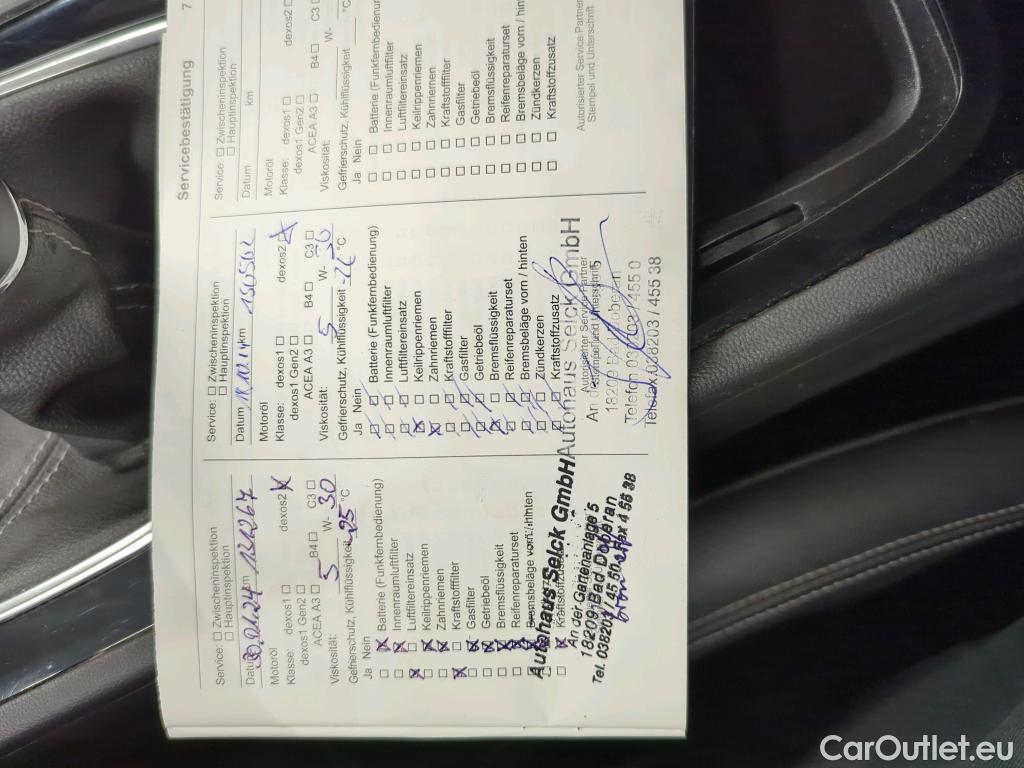 Servicebestätigung 7
Service: ☐ Zwischeninspektion
☐ Hauptinspektion
Datum 30.01.24 km 131267
Motoröl
Klasse: dexos1 ☐ dexos2 ☒
dexos1 Gen2 ☐
ACEA A3 ☐ B4 ☐ C3 ☐
Viskosität: 5 W- 30
Gefrierschutz, Kühlflüssigkeit -25 °C
Ja Nein
☐ ☒ Batterie (Funkfernbedienung)
☐ ☒ Innenraumluftfilter
☒ ☐ Luftfiltereinsatz
☐ ☒ Keilrippenriemen
☐ ☒ Zahnriemen
☒ ☐ Kraftstofffilter
☐ ☒ Gasfilter
☐ ☒ Getriebeöl
☐ ☒ Bremsflüssigkeit
☐ ☒ Reifenreparaturset
☐ ☒ Bremsbeläge vorn / hinten
☐ ☒ Kraftstoffzusatz
Autohaus Selck GmbH
An der Gartenanlage 5
18209 Bad Doberan
Tel. 038203 / 45 50 Fax 4 55 38
Service: ☐ Zwischeninspektion
☐ Hauptinspektion
Datum 18.10.24 km 150502
Motoröl
Klasse: dexos1 ☐ dexos2 ☒
dexos1 Gen2 ☐
ACEA A3 ☐ B4 ☐ C3 ☐
Viskosität: 5 W- 30
Gefrierschutz, Kühlflüssigkeit -26 °C
Ja Nein
Batterie (Funkfernbedienung)
Innenraumluftfilter
Luftfiltereinsatz
Keilrippenriemen
Zahnriemen
Kraftstofffilter
Gasfilter
Getriebeöl
Bremsflüssigkeit
Reifenreparaturset
Bremsbeläge vorn / hinten
Zündkerzen
Kraftstoffzusatz
Autohaus Selck GmbH
Autorisierter Service Partner
Stempel und Unterschrift
18209 Bad Doberan
Telefon 038203 / 455 0
Telefax 038203 / 455 38
Service: ☐ Zwischeninspektion
☐ Hauptinspektion
Datum km
Motoröl
Klasse: dexos1 ☐ dexos2 ☐
dexos1 Gen2 ☐
ACEA A3 ☐ B4 ☐ C3 ☐
Viskosität: W-
Gefrierschutz, Kühlflüssigkeit °C
Ja Nein
☐ ☐ Batterie (Funkfernbedienung)
☐ ☐ Innenraumluftfilter
☐ ☐ Luftfiltereinsatz
☐ ☐ Keilrippenriemen
☐ ☐ Zahnriemen
☐ ☐ Kraftstofffilter
☐ ☐ Gasfilter
☐ ☐ Getriebeöl
☐ ☐ Bremsflüssigkeit
☐ ☐ Reifenreparaturset
☐ ☐ Bremsbeläge vorn / hint
☐ ☐ Zündkerzen
☐ ☐ Kraftstoffzusatz
Autorisierter Service Partner
Stempel und Unterschrift
CarOutlet.eu